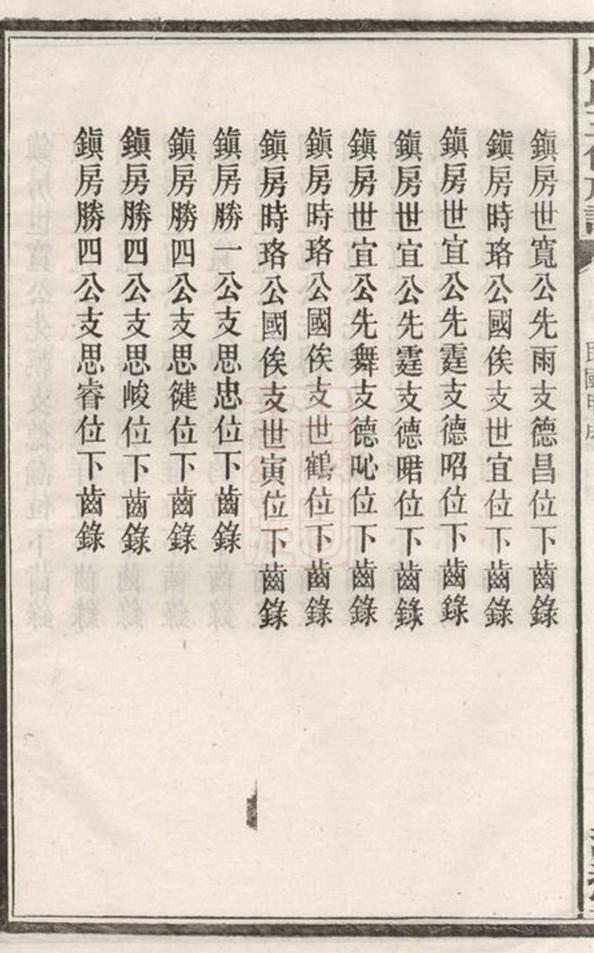 鎭房世寬公先雨支德昌位下齒錄
鎭房時珞公國俟支世宜位下齒錄
鎭房世宜公先霆支德昭位下齒錄
鎭房世宜公先霆支德喏位下齒錄
鎭房世宜公先舞支德吣位下齒錄
鎭房時珞公國俟支世鶴位下齒錄
鎭房時珞公國俟支世寅位下齒錄
鎭房勝一公支思忠位下齒錄
鎭房勝四公支思徤位下齒錄
鎭房勝四公支思峻位下齒錄
鎭房勝四公支思睿位下齒錄